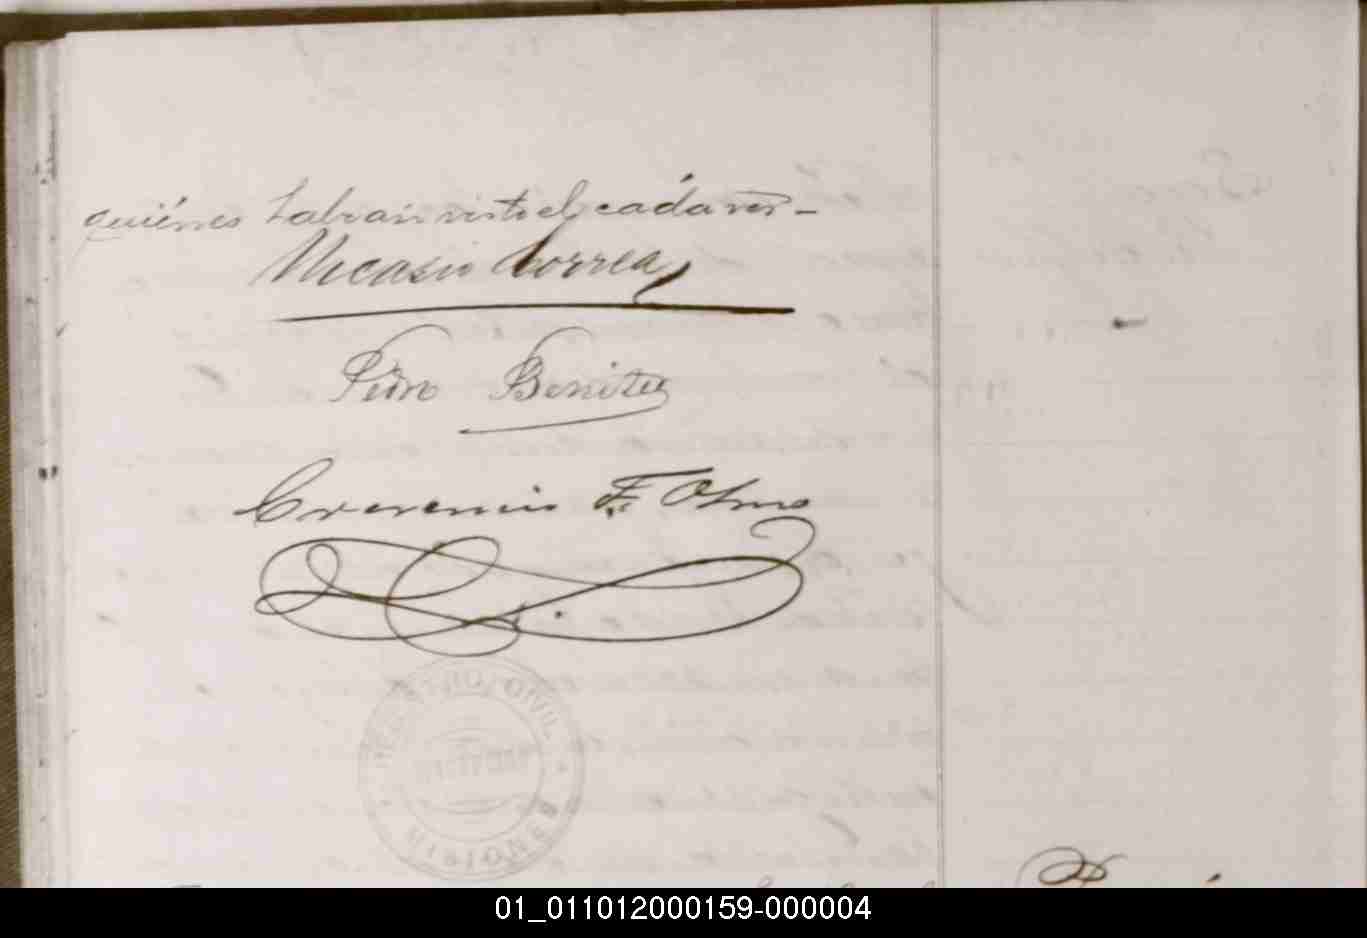 quiénes habian visto el cadaver.-
Nicasio Correa
Pedro Benitez
F. Olmo
REGISTRO CIVIL
MISIONES
01_011012000159-000004